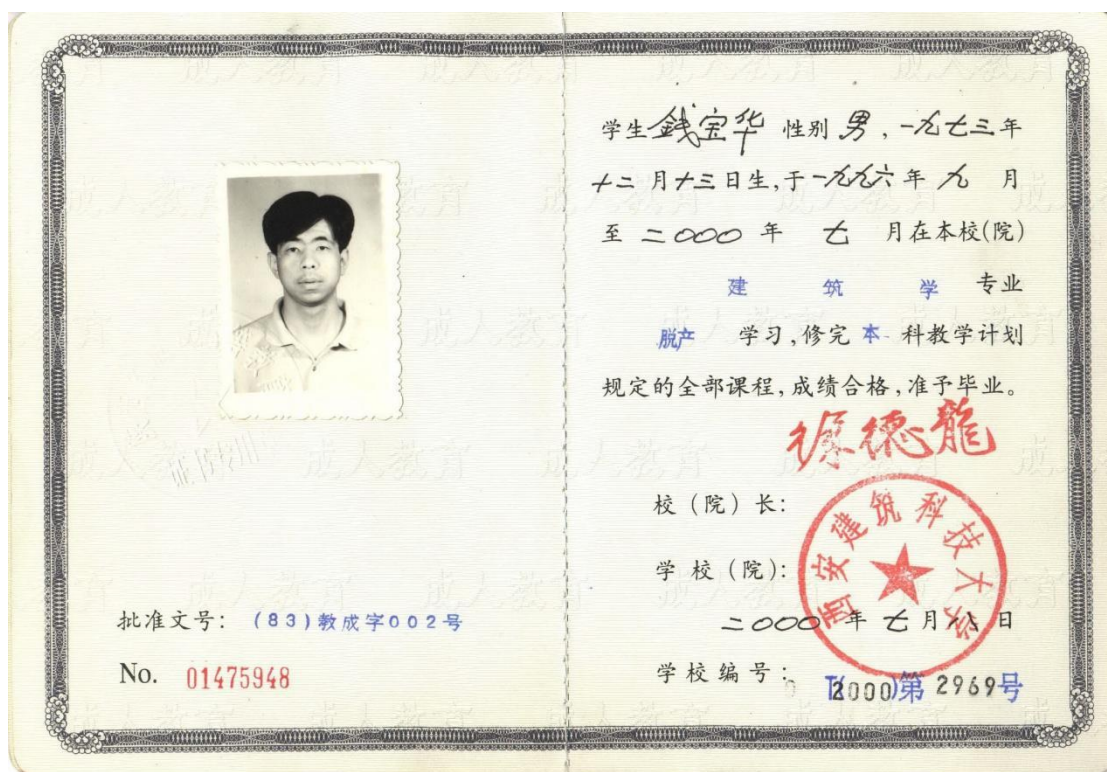 批准文号: (83)教成字002号
No. 01475948
学生 錢宝华 性别 男,一九七三年
十二月十三日生,于一九九六年九月
至二〇〇〇年 七 月在本校(院)
建 筑 学 专业
脱产 学习,修完 本 科教学计划
规定的全部课程,成绩合格,准予毕业。
徐德龍
校(院)长:
西安建筑科技大学
学校(院):
二〇〇〇年七月八日
学校编号: (2000)第 2969号
成人教育